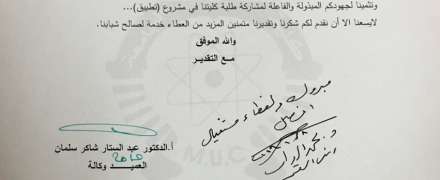 وتثميناً لجهودكم المبذولة والفاعلة لمشاركة طلبة كليتنا في مشروع (تطبيق)...
لايسعنا الا أن نقدم لكم شكرنا وتقديرنا متمنين المزيد من العطاء خدمة لصالح شبابنا.
والله الموفق
مـع التقديـر
مبروك
أ.الدكتور عبد الستار شاكر سلمان
العميـد وكالة
M.U.C